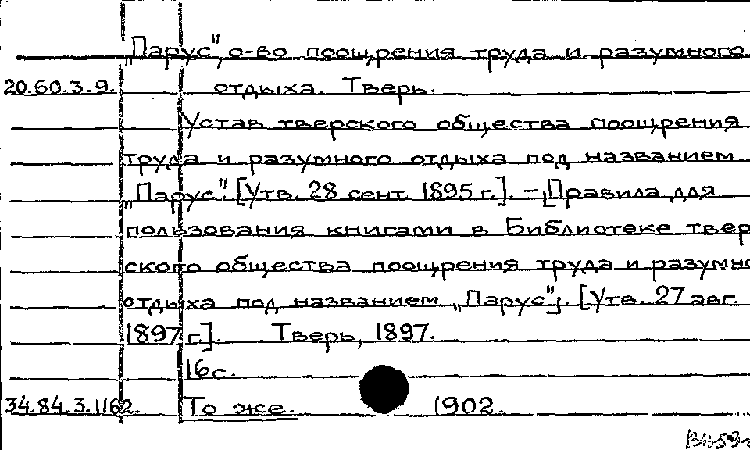 „Парус", о-во поощрения труда и разумного
20.60.3.9. отдыха. Тверь.
Устав тверского общества поощрения
труда и разумного отдыха под названием
„Парус". [Утв. 28 сент. 1895 г.]. – Правила для
пользования книгами в Библиотеке твер
ского общества поощрения труда и разумно
отдыха под названием „Парус". [Утв. 27 авг.
1897 г.]. Тверь, 1897.
16 с.
34.84.3.1162. То же. 1902